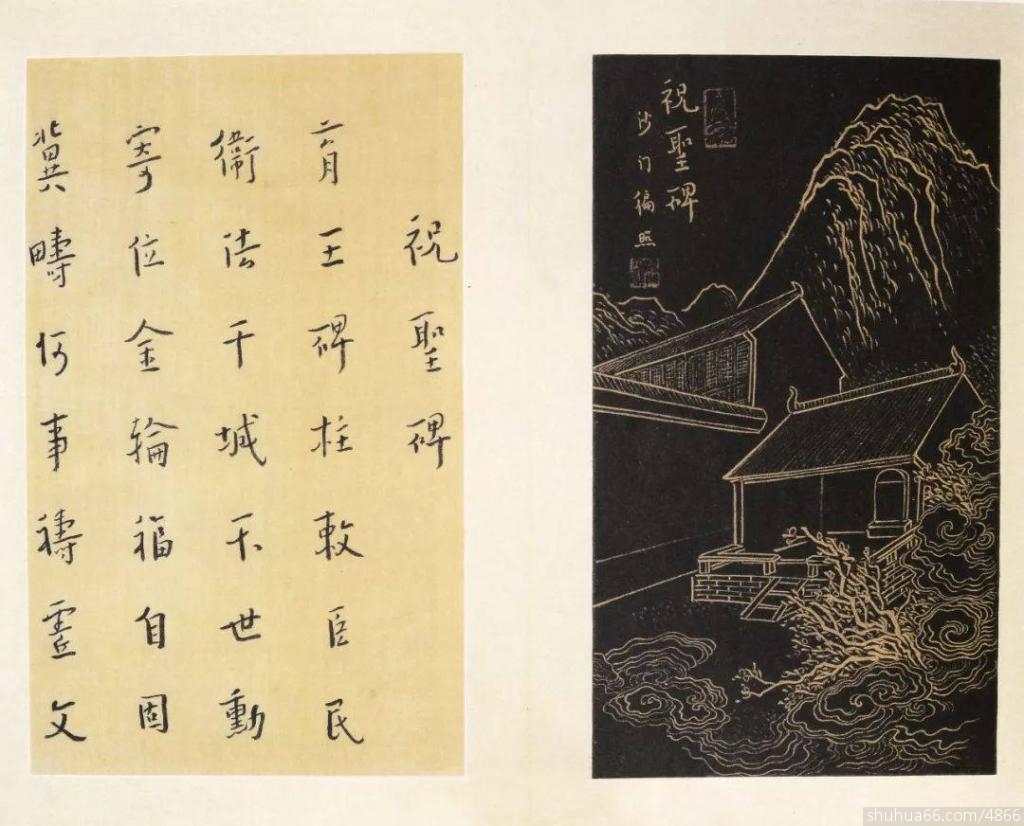 祝聖碑
沙门徧照
祝聖碑
育王碑柱敕臣民
衛法干城不世勳
寄位金輪福自固
冀疇何事禱靈文
shuhua66.com/4866